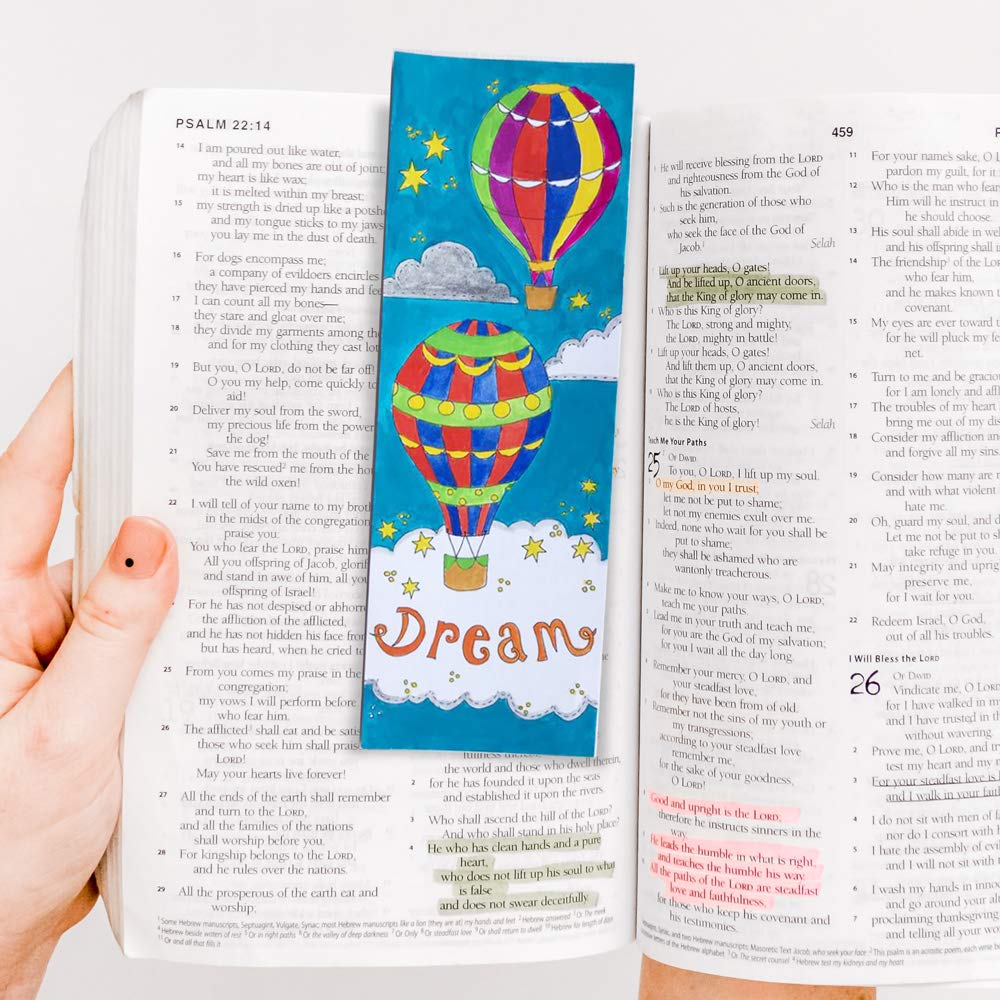 PSALM 22:14
14 I am poured out like water,
and all my bones are out of joint;
my heart is like wax;
it is melted within my breast;
15 my strength is dried up like a
and my tongue sticks to my jaws
you lay me in the dust of death.
16 For dogs encompass me;
a company of evildoers encircles
they have pierced my hands and
17 I can count all my bones—
they stare and gloat over me;
18 they divide my garments among
and for my clothing they cast
19 But you, O LORD, do not be far off!
O you my help, come quickly to
aid!
20 Deliver my soul from the sword,
my precious life from the power
the dog!
21 Save me from the mouth of the
You have rescued2 me from the
the wild oxen!
22 I will tell of your name to my
in the midst of the congregation
praise you:
You who fear the LORD, praise
All you offspring of Jacob,
and stand in awe of him, all
offspring of Israel!
For he has not despised or
the affliction of the afflicted,
and he has not hidden his face
but has heard, when he cried to
25 From you comes my praise in the
congregation;
my vows I will perform before
who fear him.
26 The afflicted3 shall eat and be
those who seek him shall
LORD!
May your hearts live forever!
27 All the ends of the earth shall remember
and turn to the LORD,
and all the families of the nations
shall worship before you.
28 For kingship belongs to the LORD,
and he rules over the nations.
29 All the prosperous of the earth eat and
worship;
Dream
the world and those who dwell therein,
2 for he has founded it upon the seas
and established it upon the rivers.
3 Who shall ascend the hill of the LORD?
And who shall stand in his holy place?
4 He who has clean hands and a pure
heart,
who does not lift up his soul to what
is false
and does not swear deceitfully.
1 Some Hebrew manuscripts, Septuagint, Vulgate, Syriac; most Hebrew manuscripts like a lion (they are at) my hands and feet 2 Hebrew answered 3 Or The meek
4 Hebrew beside waters of rest 5 Or in right paths 6 Or the valley of deep darkness 7 Or Only 8 Or steadfast love 9 Or shall return to dwell 10 Hebrew for length of days
11 Or and all that fills it
459
He will receive blessing from the LORD
and righteousness from the God of
his salvation.
Such is the generation of those who
seek him,
who seek the face of the God of
Jacob.1 Selah
Lift up your heads, O gates!
And be lifted up, O ancient doors,
that the King of glory may come in.
Who is this King of glory?
The LORD, strong and mighty,
the LORD, mighty in battle!
Lift up your heads, O gates!
And lift them up, O ancient doors,
that the King of glory may come in.
Who is this King of glory?
The LORD of hosts,
he is the King of glory! Selah
Teach Me Your Paths
25 OF DAVID.
To you, O LORD, I lift up my soul.
O my God, in you I trust;
let me not be put to shame;
let not my enemies exult over me.
Indeed, none who wait for you shall be
put to shame;
they shall be ashamed who are
wantonly treacherous.
Make me to know your ways, O LORD;
teach me your paths.
Lead me in your truth and teach me,
for you are the God of my salvation;
for you I wait all the day long.
Remember your mercy, O LORD, and
your steadfast love,
for they have been from of old.
Remember not the sins of my youth or
my transgressions;
according to your steadfast love
remember me,
for the sake of your goodness,
O LORD!
Good and upright is the LORD;
therefore he instructs sinners in the
way.
He leads the humble in what is right,
and teaches the humble his way.
All the paths of the LORD are steadfast
love and faithfulness,
for those who keep his covenant and
his testimonies.
11 For your name's sake, O
pardon my guilt, for it
12 Who is the man who
Him will he instruct in
he should choose.
13 His soul shall abide in
and his offspring shall
14 The friendship2 of the
who fear him,
and he makes known
covenant.
15 My eyes are ever toward
for he will pluck my
net.
16 Turn to me and be
for I am lonely and
17 The troubles of my heart
bring me out of my
18 Consider my affliction
and forgive all my
19 Consider how many are
and with what violent
hate me.
20 Oh, guard my soul, and
Let me not be put to
take refuge in you.
21 May integrity and
preserve me,
for I wait for you.
22 Redeem Israel, O God,
out of all his troubles.
I Will Bless the LORD
26 OF DAVID.
Vindicate me, O
for I have walked in
and I have trusted in
without wavering.
2 Prove me, O LORD, and
test my heart and my
3 For your steadfast love is
and I walk in your
4 I do not sit with men of
nor do I consort with
5 I hate the assembly of
and I will not sit with
6 I wash my hands in
and go around your
7 proclaiming thanksgiving
and telling all your
Syriac, and two Hebrew manuscripts; Masoretic Text Jacob, who seek your face 2 This psalm is an acrostic poem, each verse
letters of the Hebrew alphabet 3 Or The secret counsel 4 Hebrew test my kidneys and my heart